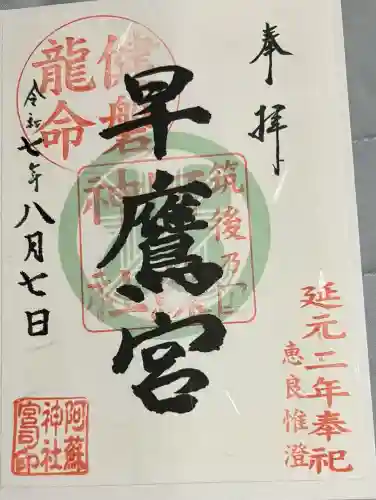 奉拝
延元二年奉祀
恵良惟澄
早鷹宮
筑後乃国
神社
健磐
龍命
令和七年八月七日
阿蘇
神社
宮司印